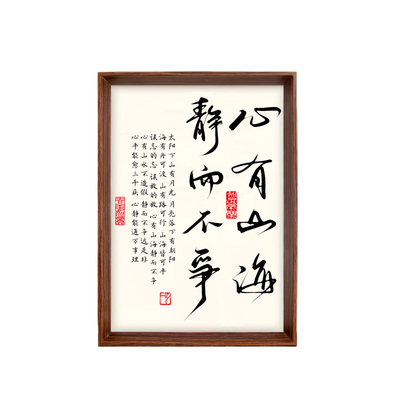 心有山海
静而不爭
太阳下山有月光 月亮落下有朝阳
海有舟可渡 山有路可行 山海皆可平
该忘的忘 该放的放 心有山海静而不争
心有山水不造作 静而不争远是非
心平能愈三千疾 心静能通万事理